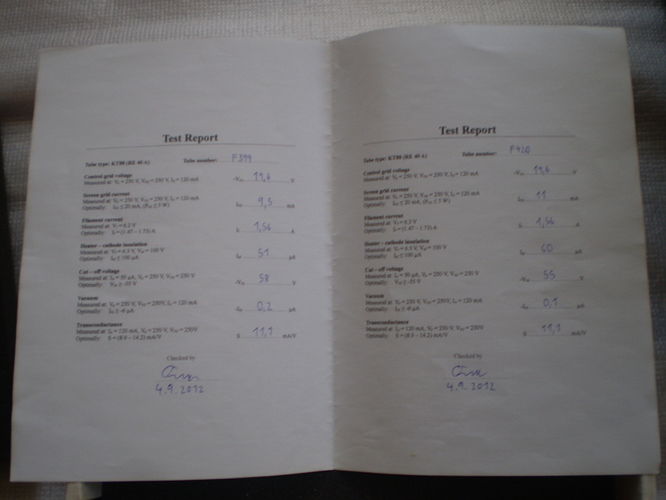 Test Report
Tube type: KT88 (RE 40 A) Tube number: F399
Control grid voltage
Measured at: Va = 250 V, Vg2 = 250 V, Ia = 120 mA -Vg1 11,4 V
Screen grid current
Measured at: Va = 250 V, Vg2 = 250 V, Ia = 120 mA
Optimally: Ig2 ≤ 20 mA, Ig2 9,5 mA
Filament current
Measured at: Vf = 6.3 V
Optimally: If = (1.47 – 1.75) A If 1,54 A
Heater – cathode insulation
Measured at: Vf = 6.3 V, 100 V
Optimally: ≤ 100 µA 51 µA
Cut – off voltage
Measured at: Ia = 50 µA, Va = 250 V, Vg2 = 250 V
Optimally: -55 V -Vg1 58 V
Vacuum
Measured at: Va = 250 V, Vg2 = 250V, Ia = 120 mA
Optimally: 0,2 µA
Transconductance
Measured at: Ia = 120 mA, Va = 250 V, Vg2 = 250V
Optimally: S = (8.9 – 14.2) mA/V S 11,1 mA/V
Checked by
4.9.2012
Test Report
Tube type: KT88 (RE 40 A) Tube number: F420
Control grid voltage
Measured at: Va = 250 V, Vg2 = 250 V, Ia = 120 mA -Vg1 11,4 V
Screen grid current
Measured at: Va = 250 V, Vg2 = 250 V, Ia = 120 mA
Optimally: Ig2 ≤ 20 mA, Ig2 11 mA
Filament current
Measured at: Vf = 6.3 V
Optimally: If = (1.47 – 1.75) A If 1,54 A
Heater – cathode insulation
Measured at: Vf = 6.3 V, 100 V
Optimally: ≤ 100 µA 60 µA
Cut – off voltage
Measured at: Ia = 50 µA, Va = 250 V, Vg2 = 250 V
Optimally: -55 V -Vg1 55 V
Vacuum
Measured at: Va = 250 V, Vg2 = 250V, Ia = 120 mA
Optimally: 0,1 µA
Transconductance
Measured at: Ia = 120 mA, Va = 250 V, Vg2 = 250V
Optimally: S = (8.9 – 14.2) mA/V S 11,1 mA/V
Checked by
4.9.2012